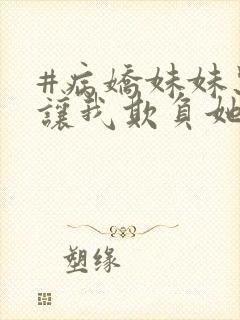 #病嬌妹妹
讓我欺負她
塑缘